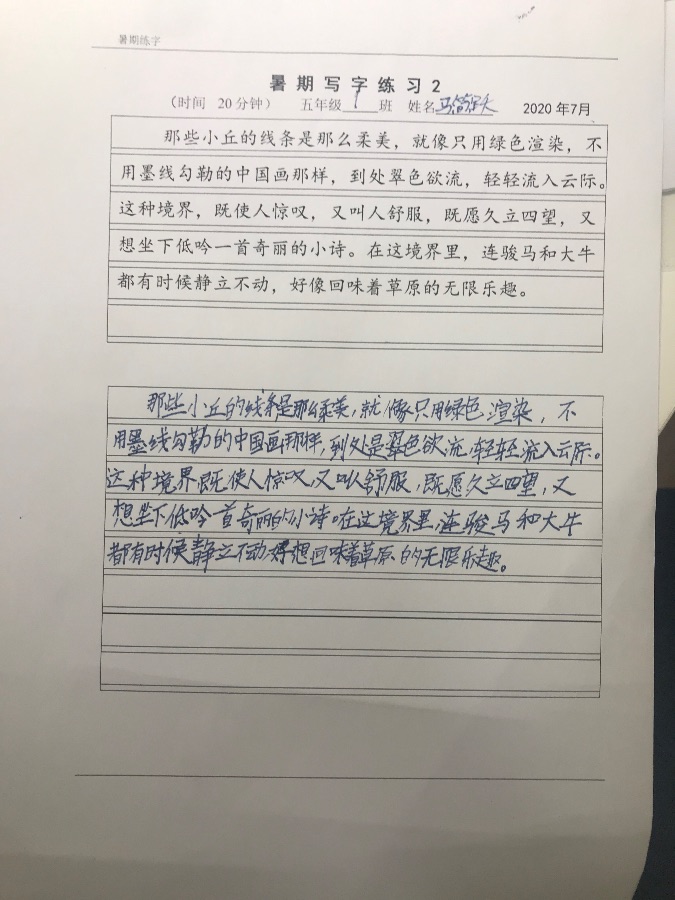 暑期练字
暑期写字练习2
（时间 20分钟） 五年级 1 班 姓名 2020年7月
那些小丘的线条是那么柔美，就像只用绿色渲染，不
用墨线勾勒的中国画那样，到处翠色欲流，轻轻流入云际。
这种境界，既使人惊叹，又叫人舒服，既愿久立四望，又
想坐下低吟一首奇丽的小诗。在这境界里，连骏马和大牛
都有时候静立不动，好像回味着草原的无限乐趣。
那些小丘的线条是那么柔美，就像只用绿色渲染，不
用墨线勾勒的中国画那样，到处是翠色欲流，轻轻流入云际。
这种境界，既使人惊叹，又叫人舒服，既愿久立四望，又
想坐下低吟一首奇丽的小诗。在这境界里，连骏马和大牛
都有时候静立不动，好想回味着草原的无限乐趣。